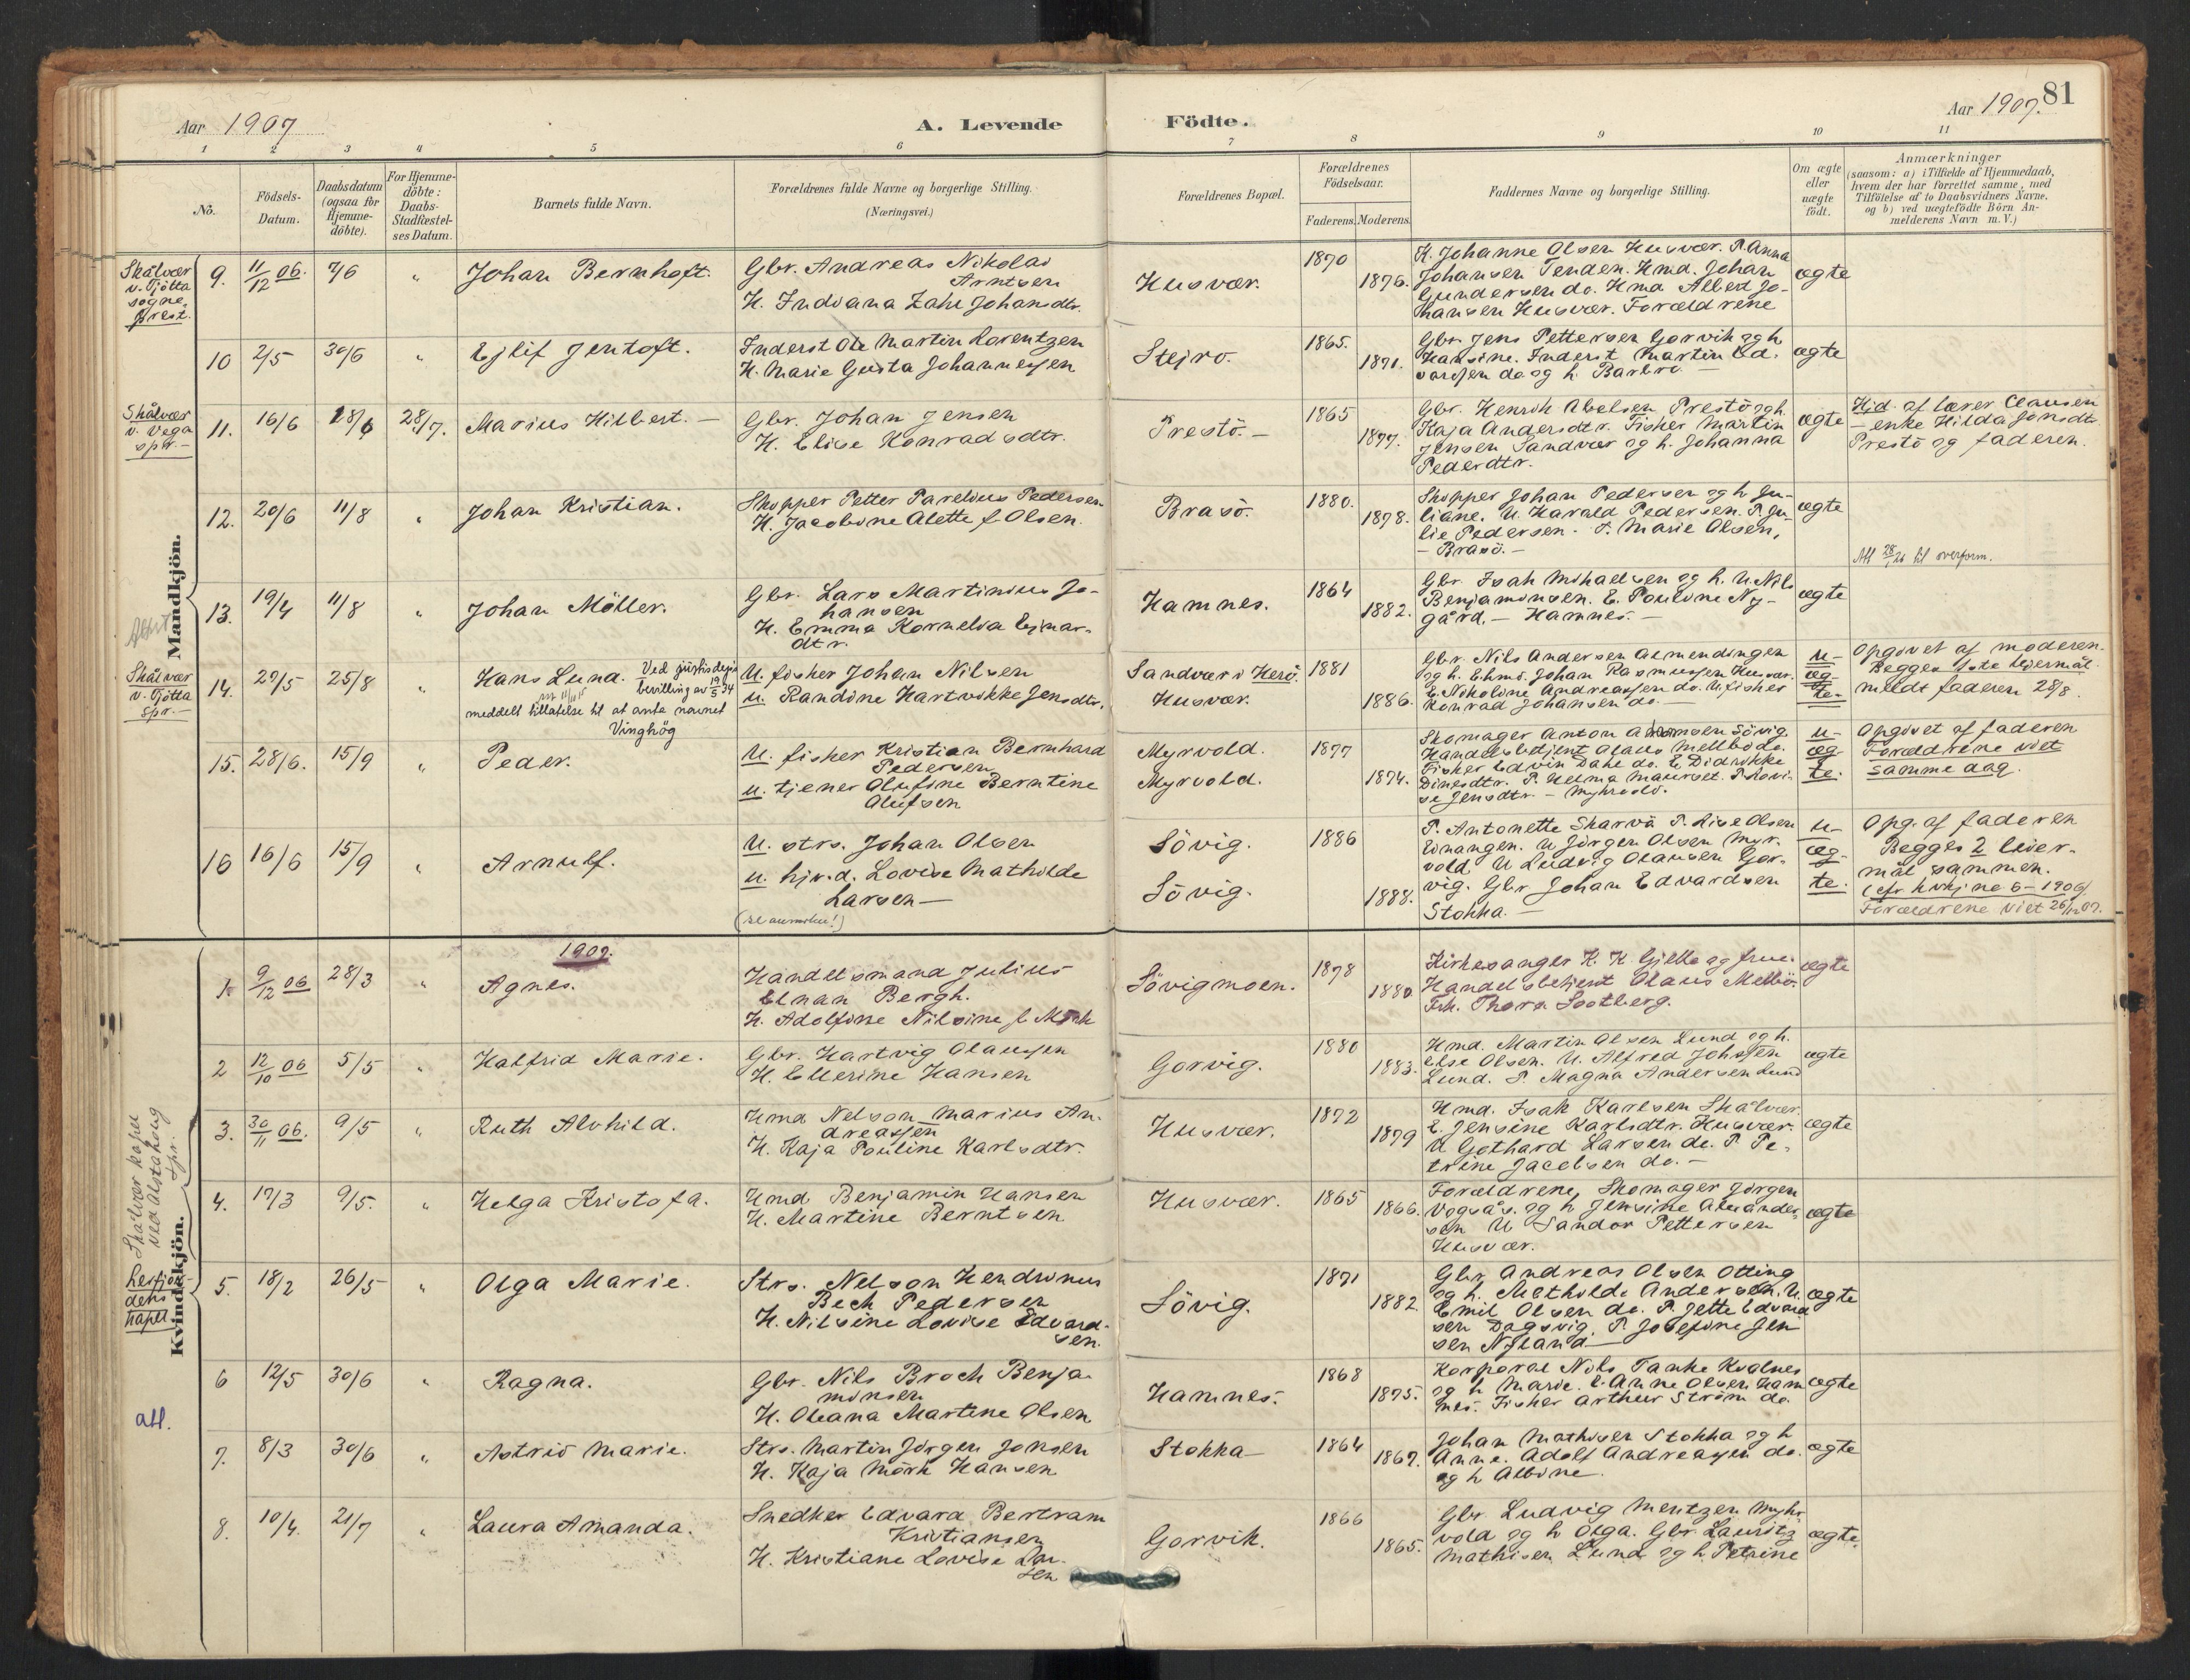 Aar 1907
A. Levende Födte.
Aar 1907. 81
1 2 3 4 5 6 7 8 9 10 11
No.
Födsels-
Datum.
Daabsdatum
(ogsaa for
Hjemme-
döbte).
For Hjemme-
döbte:
Daabs-
Stadfæstel-
ses Datum.
Barnets fulde Navn.
Forældrenes fulde Navne og borgerlige Stilling.
(Næringsvei.)
Forældrenes Bopæl.
Forældrenes
Födselsaar.
Faderens. Moderens.
Faddernes Navne og borgerlige Stilling.
Om ægte
eller
uægte
födt.
Anmærkninger
(saasom: a) i Tilfælde af Hjemmedaab,
hvem der har forrettet samme, med
Tilföielse af to Daabsvidners Navne,
og b) ved uægtefödte Börn An-
melderens Navn m. V.)
Mandkjön.
Skålvær
v. Tjötta
sogne-
prest.
9. 11/12 06. 7/6 " Johan Bernhoft.
Gbr. Andreas Nikolai
Arntsen
H. Indiana Zahl Johansdtr.
Husvær. 1870 1876.
K. Johanne Olsen Husvær. P. Anna
Johansen Tenden. Hmd. Johan
Gundersen do. Hmd Albert Jo-
hansen Husvær. Forældrene
ægte
10 2/5 30/6 " Ejlif Jentoft.
Inderst Ole Martin Lorentzen
H. Marie Gusta Johannessen
Stejro. 1865. 1871.
Gbr. Jens Pettersen Gorvik og h
Hansine. Inderst Martin Ed-
vardsen do og h. Barbro. —
ægte
Skålvær
v. Vega
spr.—
11. 16/6 18/6 28/7. Marius Hilbert. —
Gbr. Johan Jensen
H. Elise Konradsdtr.
Prestö. — 1865 1877.
Gbr. Henrik Abelsen Prestö og h.
Kaja Andersdtr. Fisker Martin
Jensen Sandvær og h. Johanna
Pedersdtr.
ægte
Hjd. af lærer Clausen
— enke Hilda Jonsdtr
Prestö og faderen.
12. 20/6 11/8 " Johan Kristian.
Skipper Petter Parelius Pedersen
H. Jacobine Alette f. Olsen.
Brasö. 1880. 1878.
Skipper Johan Pedersen og h Ju-
liane. U. Harald Pedersen. P. Ju-
lie Pedersen. P. Marie Olsen,
— Brasö. —
ægte
Att til overform.
13. 19/4 11/8 " Johan Möller.
Gbr. Lars Martinius Jo-
hansen
H. Emma Kornelia Ejnar-
dtr.
Hamnes. 1864 1882.
Gbr. Isak Mikaelsen og h. U. Nils
Benjaminsen. E. Pauline Ny-
gård. — Hamnes. —
ægte
Skålvær
v. Tjötta
spr.—
14. 27/5 25/8 " Hans Lund. Ved justisdep's
bevilling av 19/5 34
meddelt tillatelse til at anta navnet
Vinghög
U. fisker Johan Nilsen
u. Randine Hartvikke Jensdtr.
Sandvær i Herö. Husvær. 1881 1886.
Gbr. Nils Andersen Almendingen
og h. Ekmd. Johan Rasmussen Husvær.
E. Nikoline Andreassen do. U. fisker
Konrad Johansen do. —
u-
æg-
te-
Opgivet af moderen.
Begges 1ste leiermål.
meldt faderen 28/8.
15. 28/6. 15/9 " Peder.
U. fisker Kristian Bernhard
Pedersen
u. tjener Olufine Berntine
Olufsen
Myrvold. Myrvold. 1877 1874.
Skomager Anton Adamsen Sövig.
Handelsbetjent Olaus Mellbo do.
Fisker Edvin Dahl do. E. Didrikke
Dinesdtr. P. Helma Maurset. P. Lovi-
se Jensdtr — Myhrvold.
u-
æg-
te.
Opgivet af faderen
Forældrene viet
samme dag.
16 16/6 15/9 " Arnulf.
U. strs. Johan Olsen
u. hjv. d. Lovise Mathilde
Larsen —
Sövig. Sövig. 1886 1888.
P. Antonette Skarvå P. Lise Olsen
Einangen. U Jörgen Olsen Myr-
vold. U Ludvig Olausen Gor-
vig. Gbr Johan Edvardsen
Stokka. —
u-
æg-
te.
Opg. af faderen
Begges 2 leier-
mål sammen.
(cfr. kvkj no 6 — 1906)
Forældrene viet 26/12 07.
Kvindekjön.
Skålvær kapel
ved Alstahoug
spr.
1907.
1. 9/12 06 28/3 " Agnes.
Handelsmand Julius
Elnan Bergh.
H. Adolfine Nilsine f. Mörk
Sövigmoen. 1878 1880.
Kirkesanger K. K Gjelle og frue.
Handelsbetjent Olaus Mellbö.
Frk. Thora Sootberg.
ægte
2 12/10 06 5/5 " Halfrid Marie.
Gbr. Hartvig Olaussen
H. Ellerine Hansen
Gorvig. 1880 1883.
Hmd. Martin Olsen Lund og h.
Else Olsen. U. Alfred Johnsen
Lund. P. Magna Andersen Lund
ægte
3. 30/11 06. 9/5 " Ruth Alvhild.
Hmd Nelson Marius An-
dreassen
H. Kaja Pauline Karlsdtr.
Husvær. 1872 1879
Hmd. Isak Karlsen Skålvær.
E. Jensine Karlsdtr. Husvær.
U Gothard Larsen do. P. Pe-
trine Jacobsen do. —
ægte
4. 17/3 9/5. " Helga Kristofa.
Hmd Benjamin Hansen
H. Martine Berntsen
Husvær. 1865 1866.
Forældrene, Skomager Jörgen
Vogsås. og h Jensine Alexander-
sen U Sandor Pettersen
Husvær.
ægte
Leifjor-
dens
kapel
5. 18/2 26/5 " Olga Marie.
Strs. Nelson Hendrinus
Bech Pedersen
H. Nilsine Lovise Edvard-
sen.
Sövig. 1871 1882.
Gbr Andreas Olsen Otting
og h. Methilde Andersen. U.
Emil Olsen do. P. Jette Edvard
sen Dagsvig. P. Josefine Jen
sen Nyland —
ægte
6 12/5 30/6 " Ragna.
Gbr. Nils Broch Benja-
minsen
H. Oleana Martine Olsen
Hamnes. 1868 1875.
Korporal Nils Tanke Kvalnes
og h Marie. E. Anne Olsen Ham
nes. Fisker Arthur Ström do.
ægte
att.
7. 8/3 30/6 " Astrid Marie.
Strs. Martin Jörgen Jonsen
H. Kaja Mörk Hansen
Stokka — 1864 1867.
Johan Mathisen Stokka og h
Anne. Adolf Andreassen do.
og h Albine.
ægte
8. 10/4. 21/7 " Laura Amanda.
Snedker Edvard Bertram
Kristiansen
H. Kristiane Lovise Lar-
sen
Gorvik. 1866 1865.
Gbr. Ludvig Mentzen Myhr
vold og h Olga. Gbr. Lauritz
Mathisen Lund og h. Petrine
ægte.